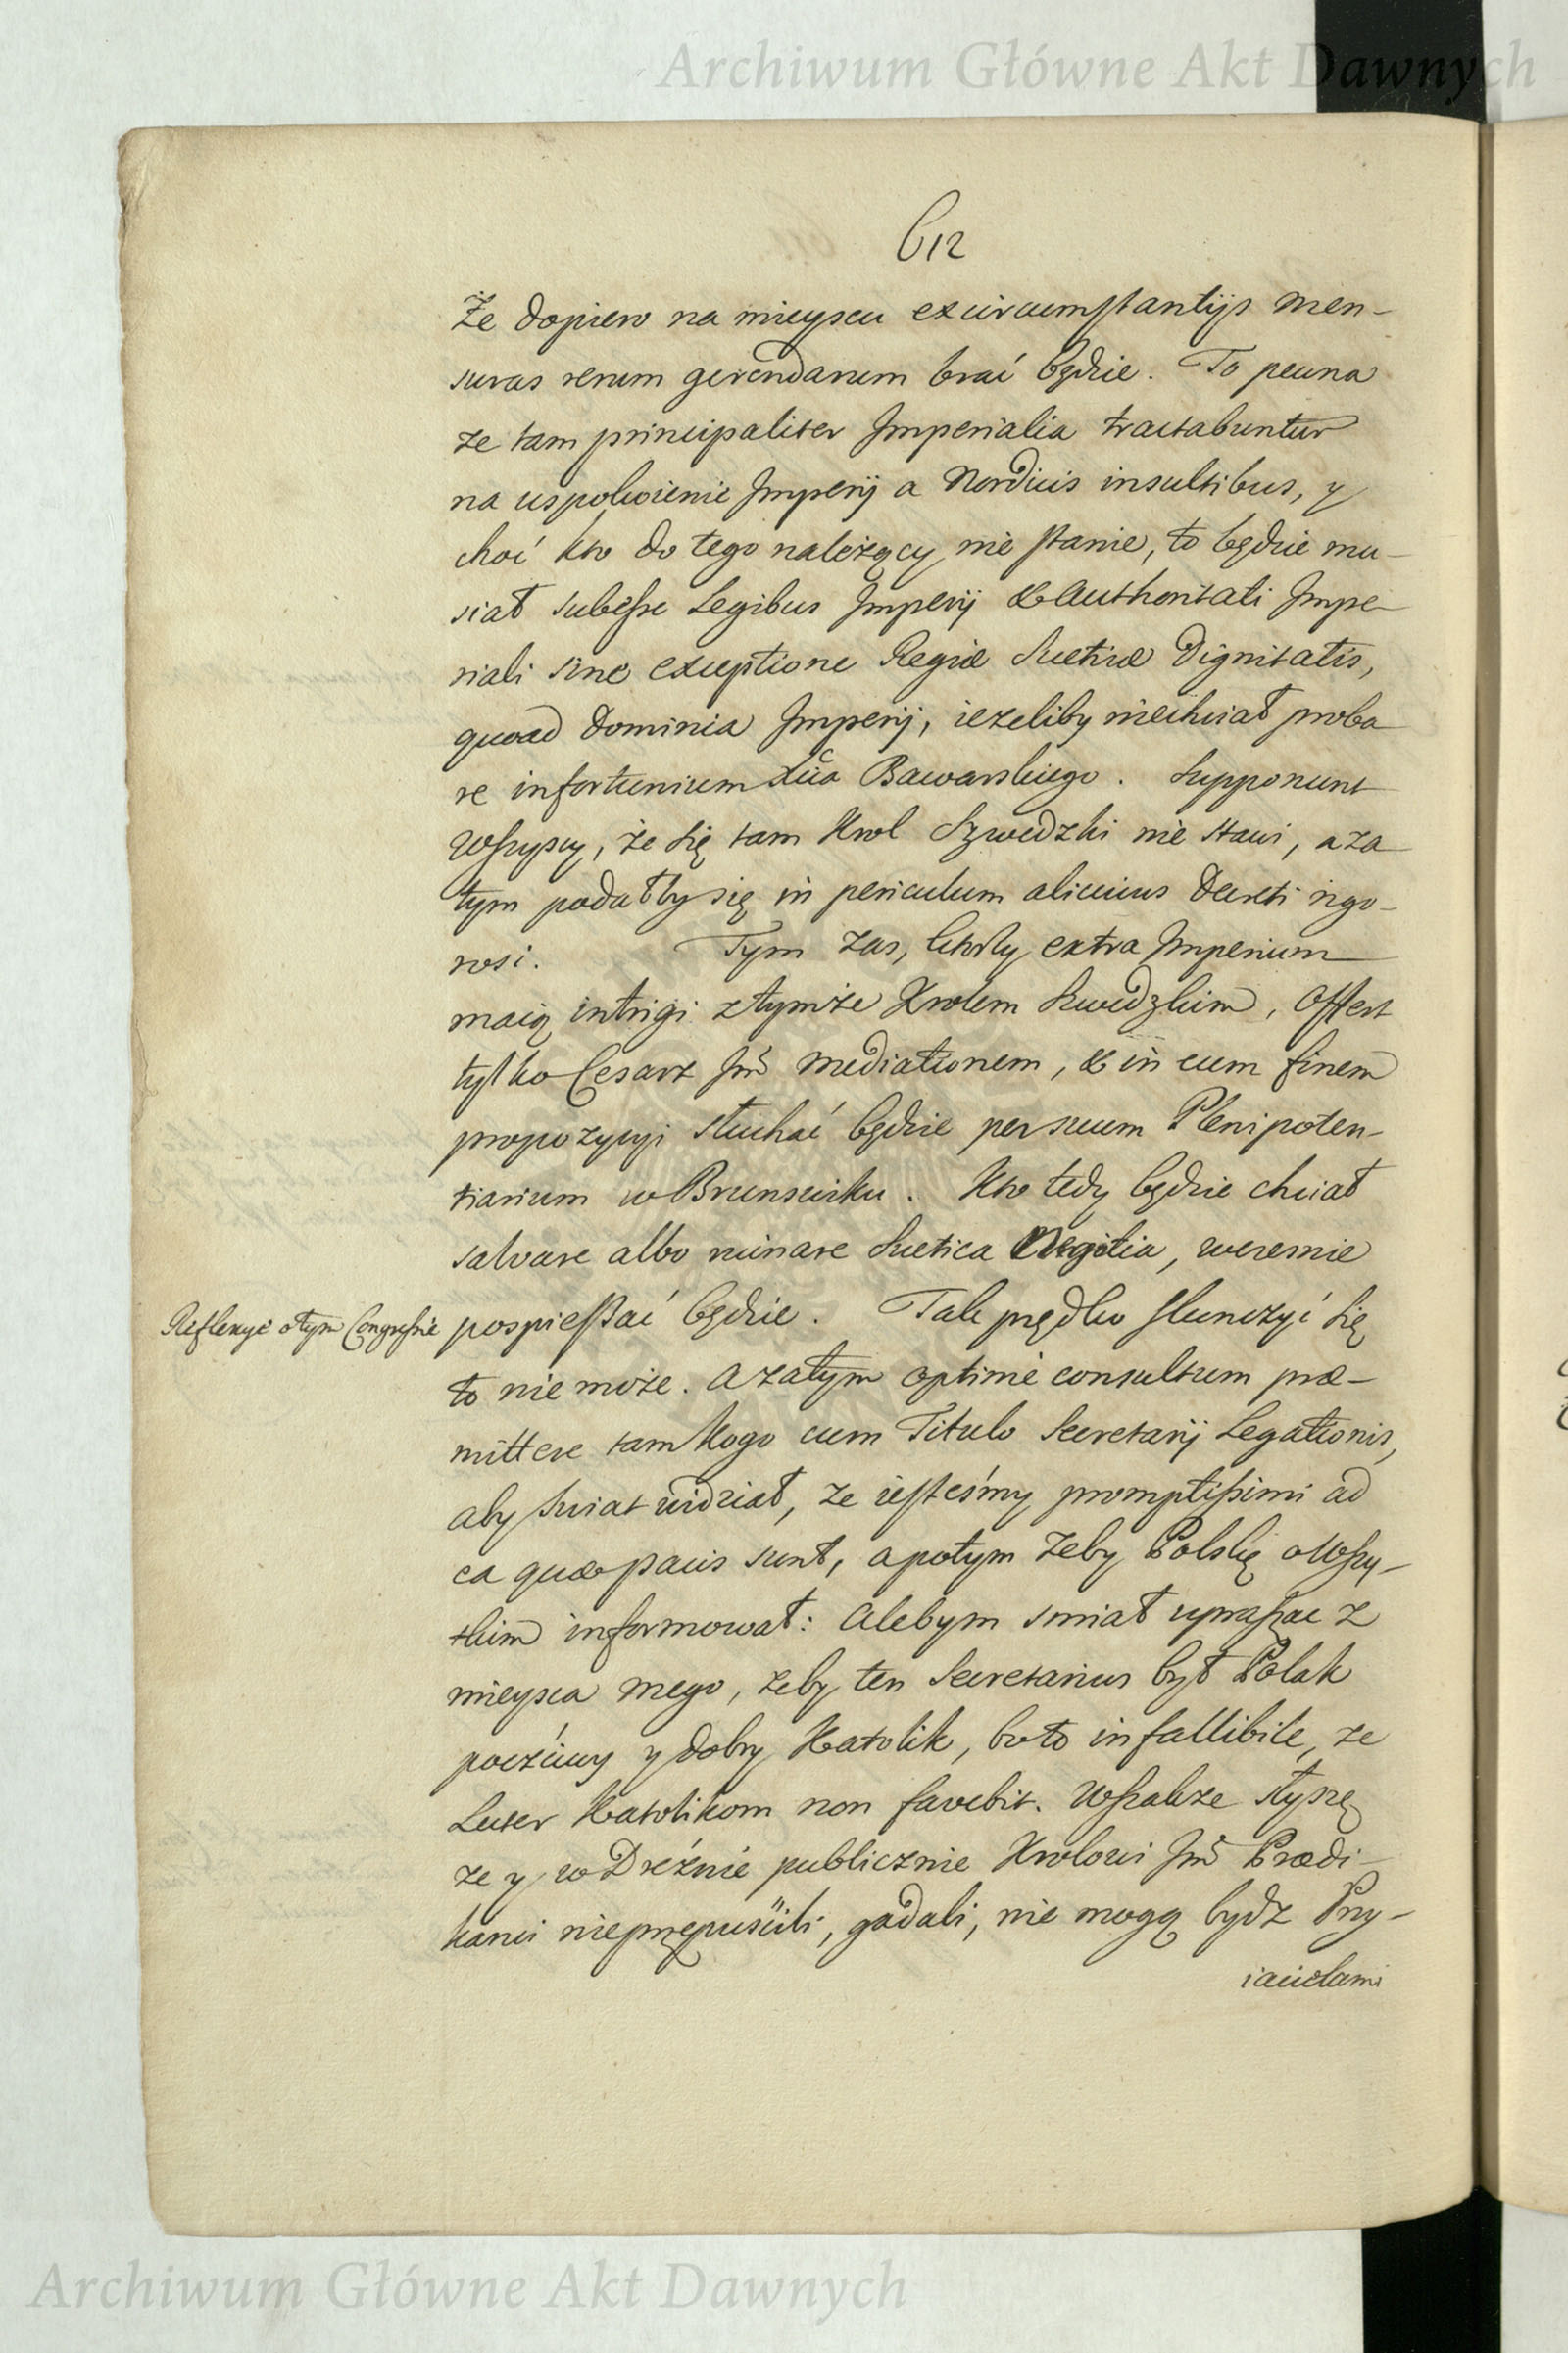 Archiwum Główne Akt Dawnych
612
Że dopiero na mieyscu ex circumstantijs men-
suras rerum gerendarum brać będzie. To pewna
ze tam principaliter Imperialia tractabuntur
na uspokoienie Imperij a Nordicis insultibus, y
choć kto do tego należący nie stanie, to będzie mu-
siał subesse Legibus Imperij & Authoritati Impe-
riali sine exceptione Regiæ Sueticæ Dignitatis,
quoad Dominia Imperij, ieżeliby niechciał proba
re infortunium Xcia Bawarskiego. Supponunt
wszyscy, że się tam Krol Szwedzki nie stawi, a za
tym podałby się in periculum alicuius Decreti rigo-
rosi. Tym zas, ktorzy extra Imperium
maią intrigi z tymże Krolem Szwedzkim, offert
tylko Cesarz Jmć mediationem, & in eum finem
propozycyi słuchać będzie per suum Plenipoten-
tiarium w Brunswiku. Kto tedy będzie chciał
salvare albo ruinare Suetica Negotia, wczesnie
Reflexye o tym Congressie
pospieszać będzie. Tak prędko skonczyć się
to nie może. A zatym optime consultum præ-
mittere tam kogo cum Titulo Secretarij Legationis,
aby swiat widział, ze iesteśmy promptissimi ad
ea quæ pacis sunt, a potym zeby Polskę o wszy-
tkim informował: Alebym smiał upraszac z
mieysca mego, zeby ten Secretarius był Polak
poczćiwy y dobry Katolik, bo to infallibile, ze
Luter Katolikom non favebit. Wszakze słyszę
ze y w Dreźnie publicznie Krolowi Jmć Prædi-
kanci nieprzepuścili, gadali, nie mogą bydz Przy-
iacielami
Archiwum Główne Akt Dawnych